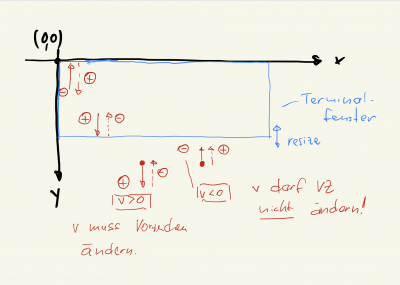 (0,0)
x
⊖ ⊕
⊕ ⊖
Terminal-
fenster
resize
y
⊖ ⊕
⊕ ⊖
v>0
v<0
v darf VZ
nicht ändern!
v muss Vorzeichen
ändern.